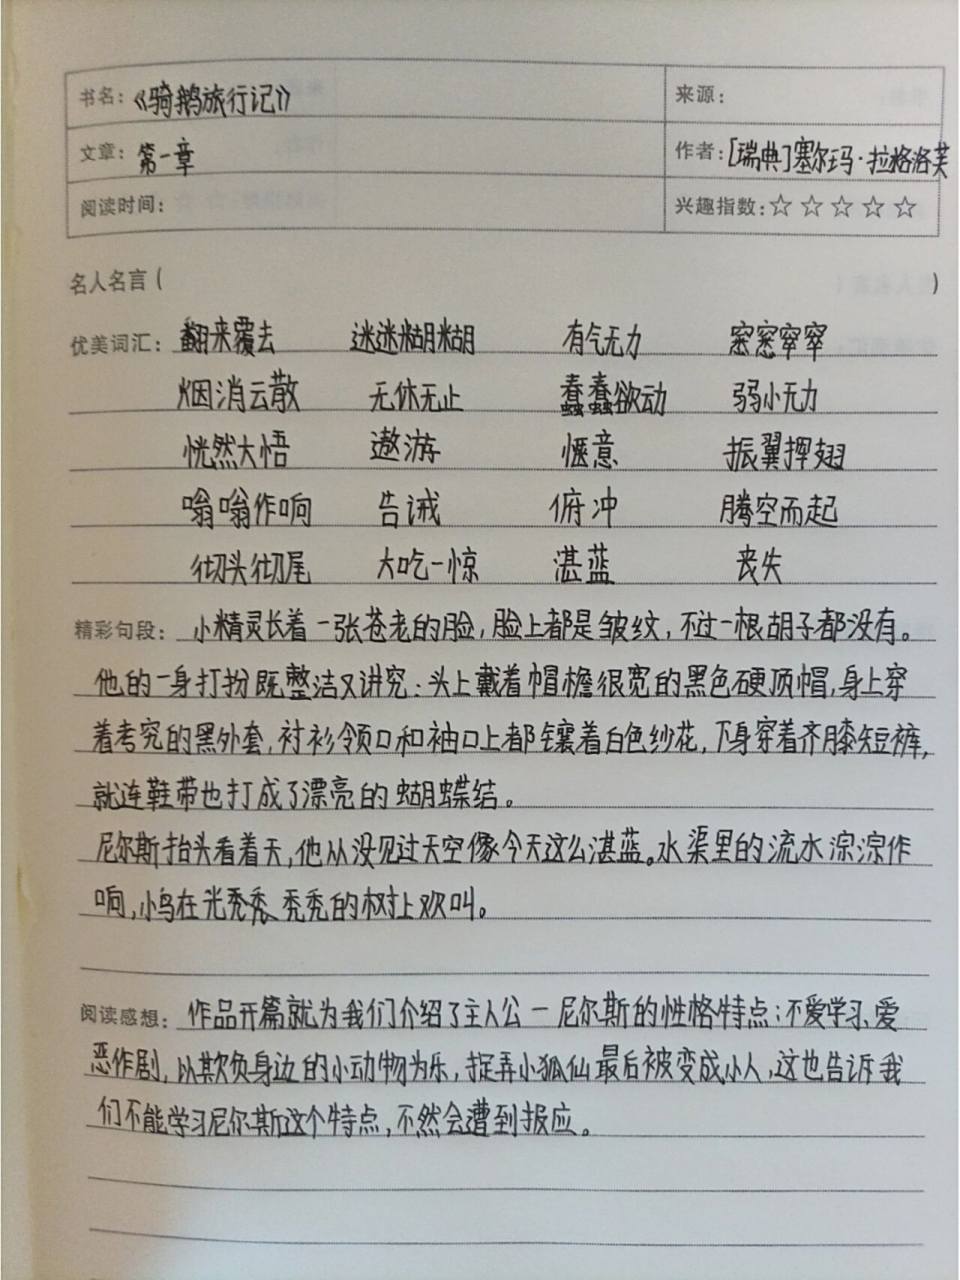 书名：《骑鹅旅行记》 来源：
文章：第一章 作者：[瑞典]塞尔玛·拉格洛芙
阅读时间： 兴趣指数：☆☆☆☆☆
名人名言（ ）
优美词汇：翻来覆去 迷迷糊糊 有气无力 窸窸窣窣
烟消云散 无休无止 蠢蠢欲动 弱小无力
恍然大悟 遨游 惬意 振翼挥翅
嗡嗡作响 告诫 俯冲 腾空而起
彻头彻尾 大吃一惊 湛蓝 丧失
精彩句段：小精灵长着一张苍老的脸，脸上都是皱纹，不过一根胡子都没有。
他的一身打扮既整洁又讲究：头上戴着帽檐很宽的黑色硬顶帽，身上穿
着考究的黑外套，衬衫领口和袖口上都镶着白色纱花，下身穿着齐膝短裤，
就连鞋带也打成了漂亮的蝴蝶结。
尼尔斯抬头看着天，他从没见过天空像今天这么湛蓝。水渠里的流水淙淙作
响，小鸟在光秃秃、秃秃的树上欢叫。
阅读感想：作品开篇就为我们介绍了主人公一尼尔斯的性格特点：不爱学习、爱
恶作剧，以欺负身边的小动物为乐，捉弄小狐仙最后被变成小人，这也告诉我
们不能学习尼尔斯这个特点，不然会遭到报应。